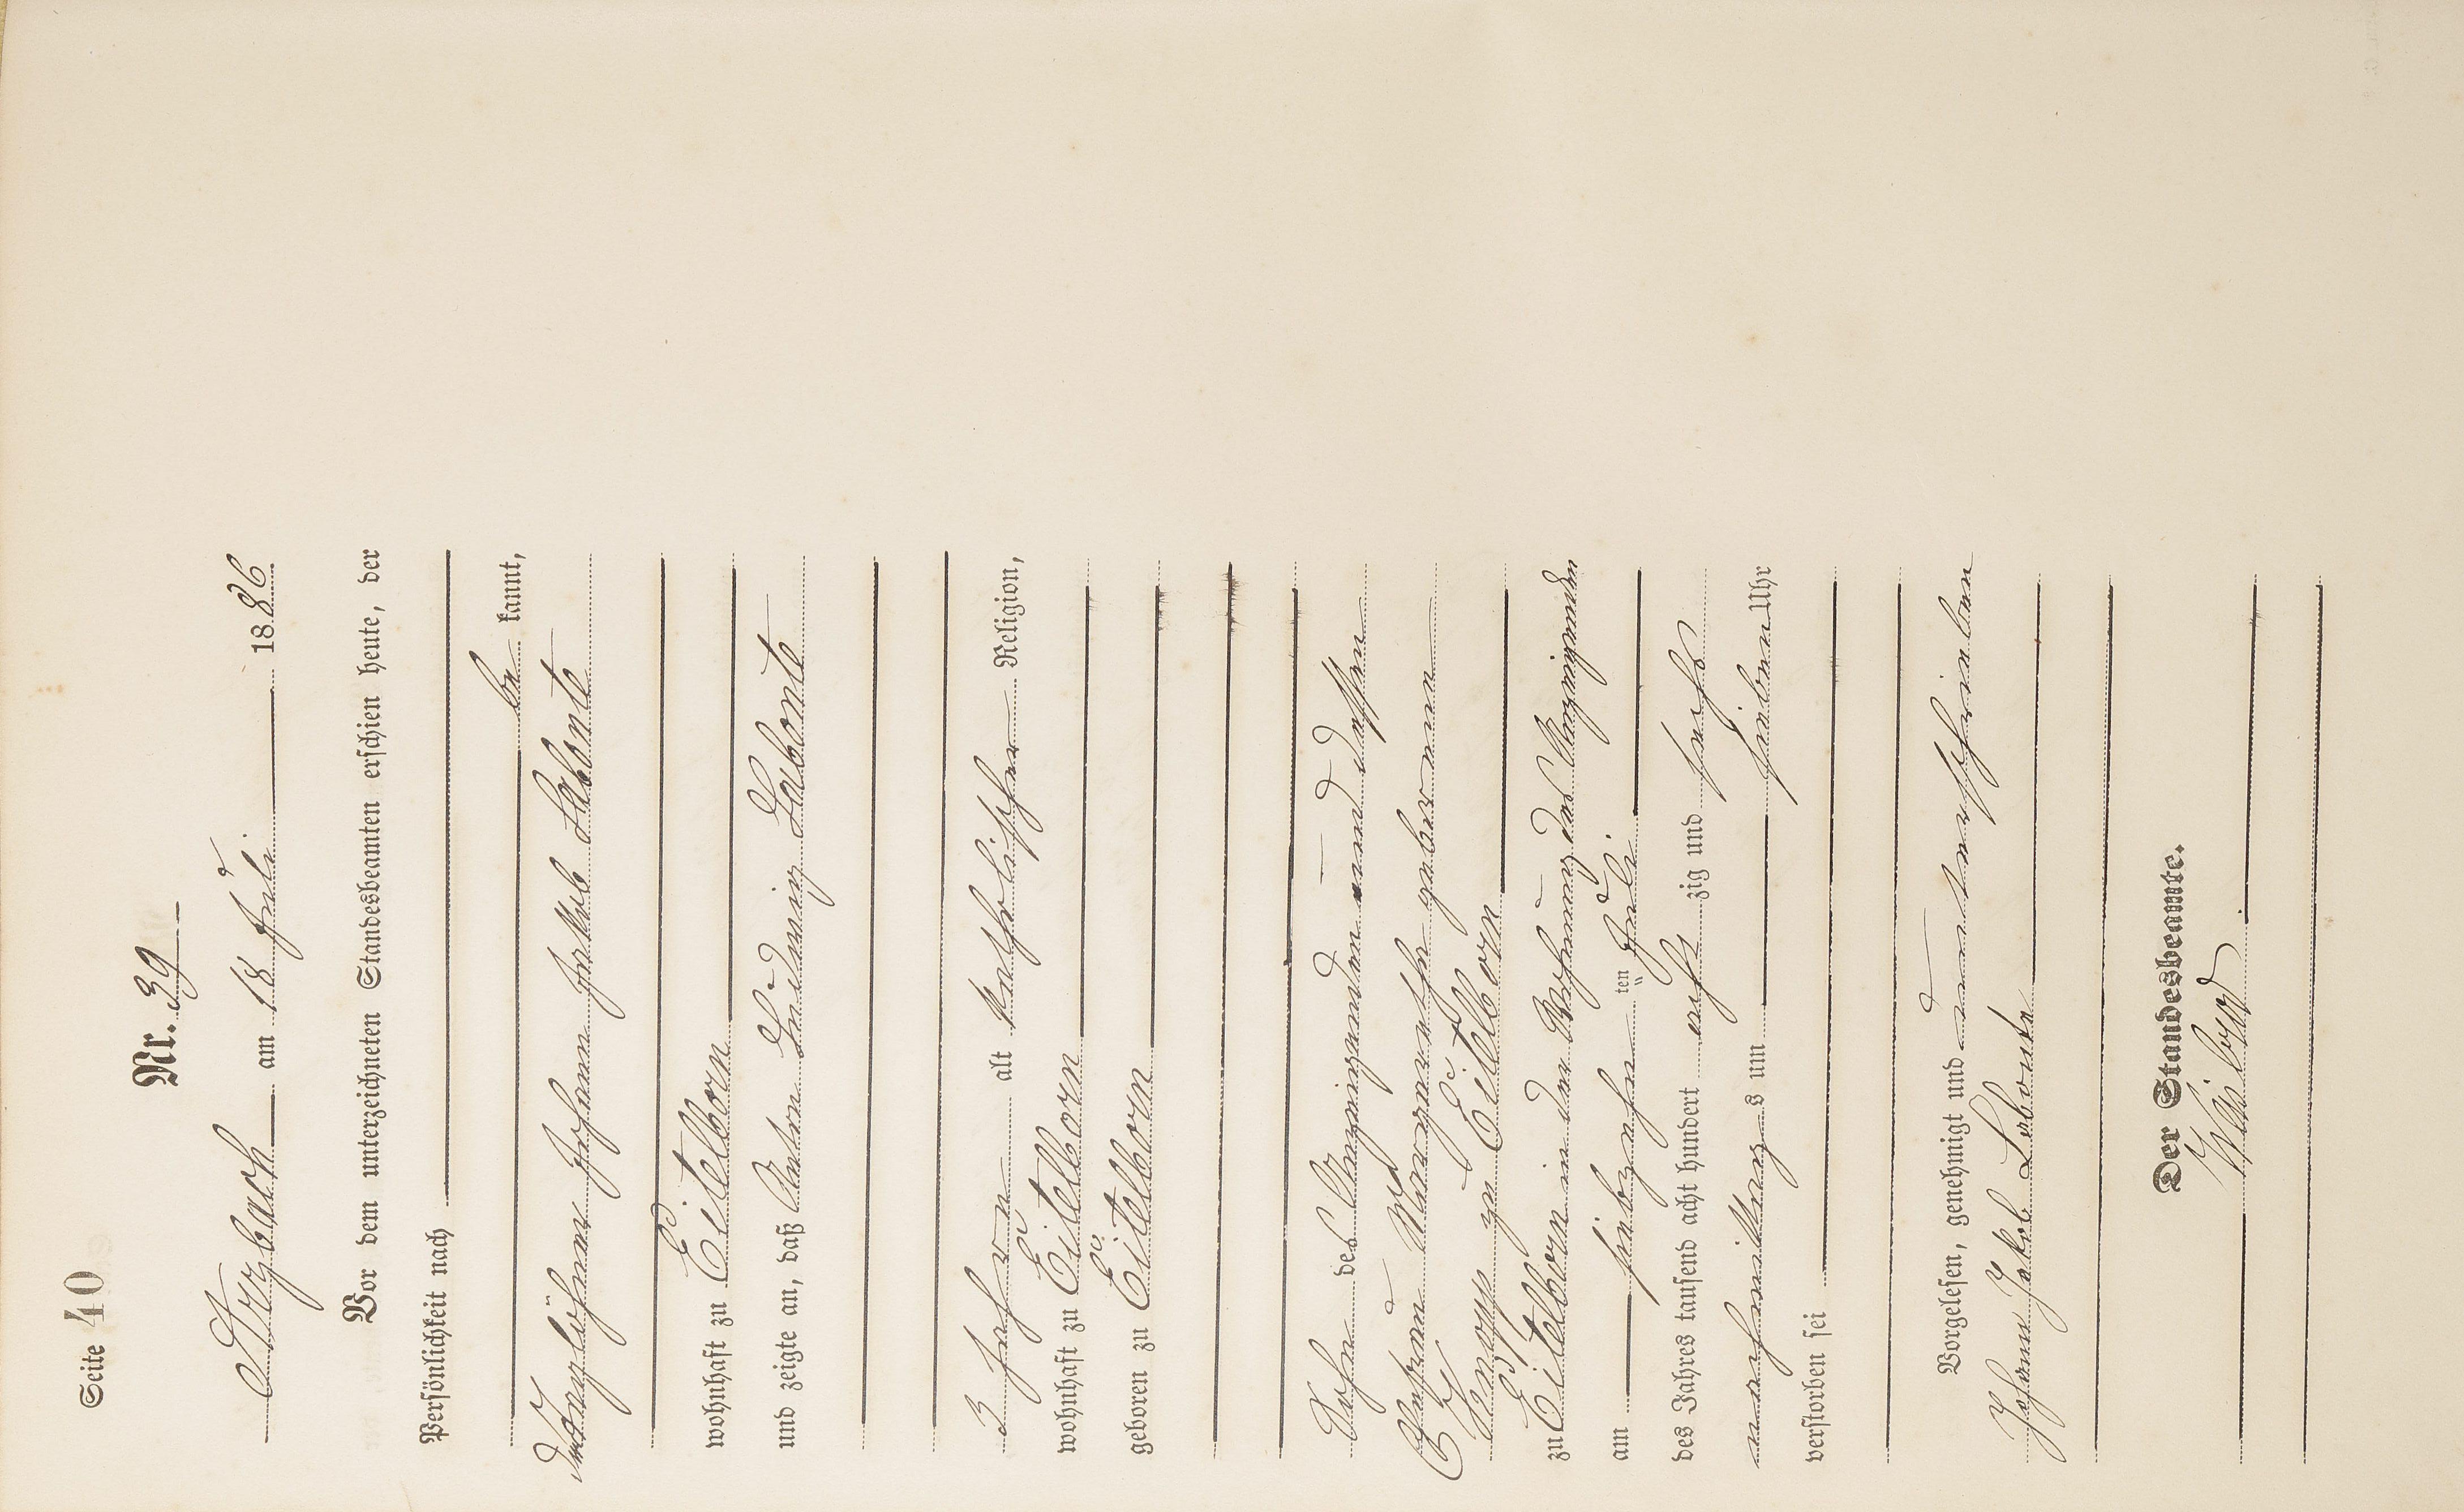 Seite 40
Nr. 39
Arzbach am 18 Juli 1886
Vor dem unterzeichneten Standesbeamten erschien heute, der
Persönlichkeit nach
be kannt,
der Taglöhner Johann Jakob Labonte
wohnhaft zu Eitelborn
und zeigte an, daß Anton Ludwig Labonte
3 Jahre alt katholischer Religion,
wohnhaft zu Eitelborn
geboren zu Eitelborn
Sohn des Anzeigenden und dessen
Ehefrau Margarethe geborenen
Knopp zu Eitelborn
zu Eitelborn in der Wohnung des Anzeigenden
am siebzehn ten Juli
des Jahres tausend acht hundert acht zig und sechs
nachmittag s um sieben Uhr
verstorben sei
Vorgelesen, genehmigt und unterschrieben
Johann Jakob Labonte
Der Standesbeamte.